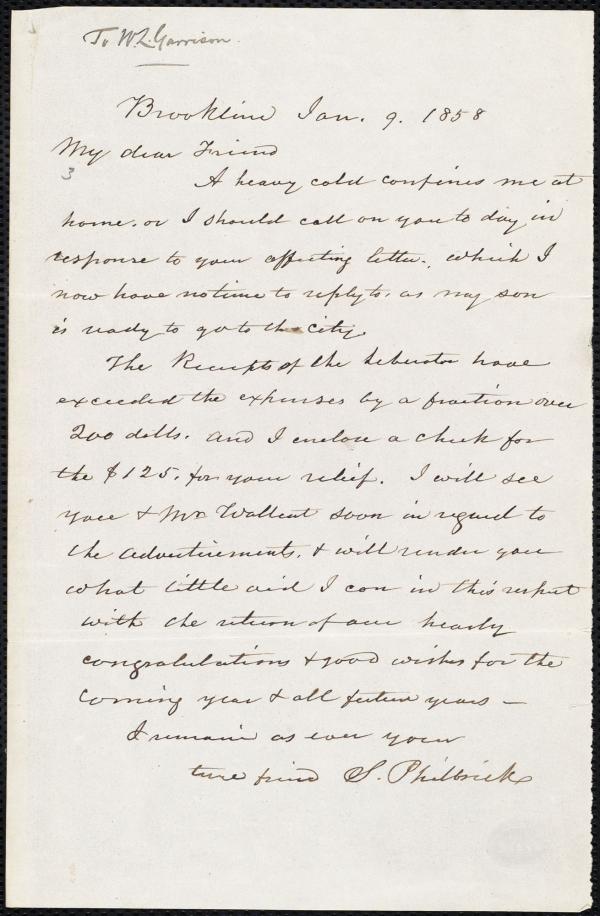 To W. L. Garrison.
Brookline Jan. 9. 1858
My dear Friend
3
A heavy cold confines me at
home. or I should call on you to day in
response to your affecting letter. which I
now have no time to reply to. as my son
is ready to go to the city.
The Receipts of the Liberator have
exceeded the expenses by a fraction over
200 dolls. and I enclose a check for
the $125. for your relief. I will see
you & Mr Wallcut soon in regard to
the advertisements. & will render you
what little aid I can in this respect
with the return of our hearty
congratulations & good wishes for the
coming year & all future years —
I remain as ever your
true friend S. Philbrick